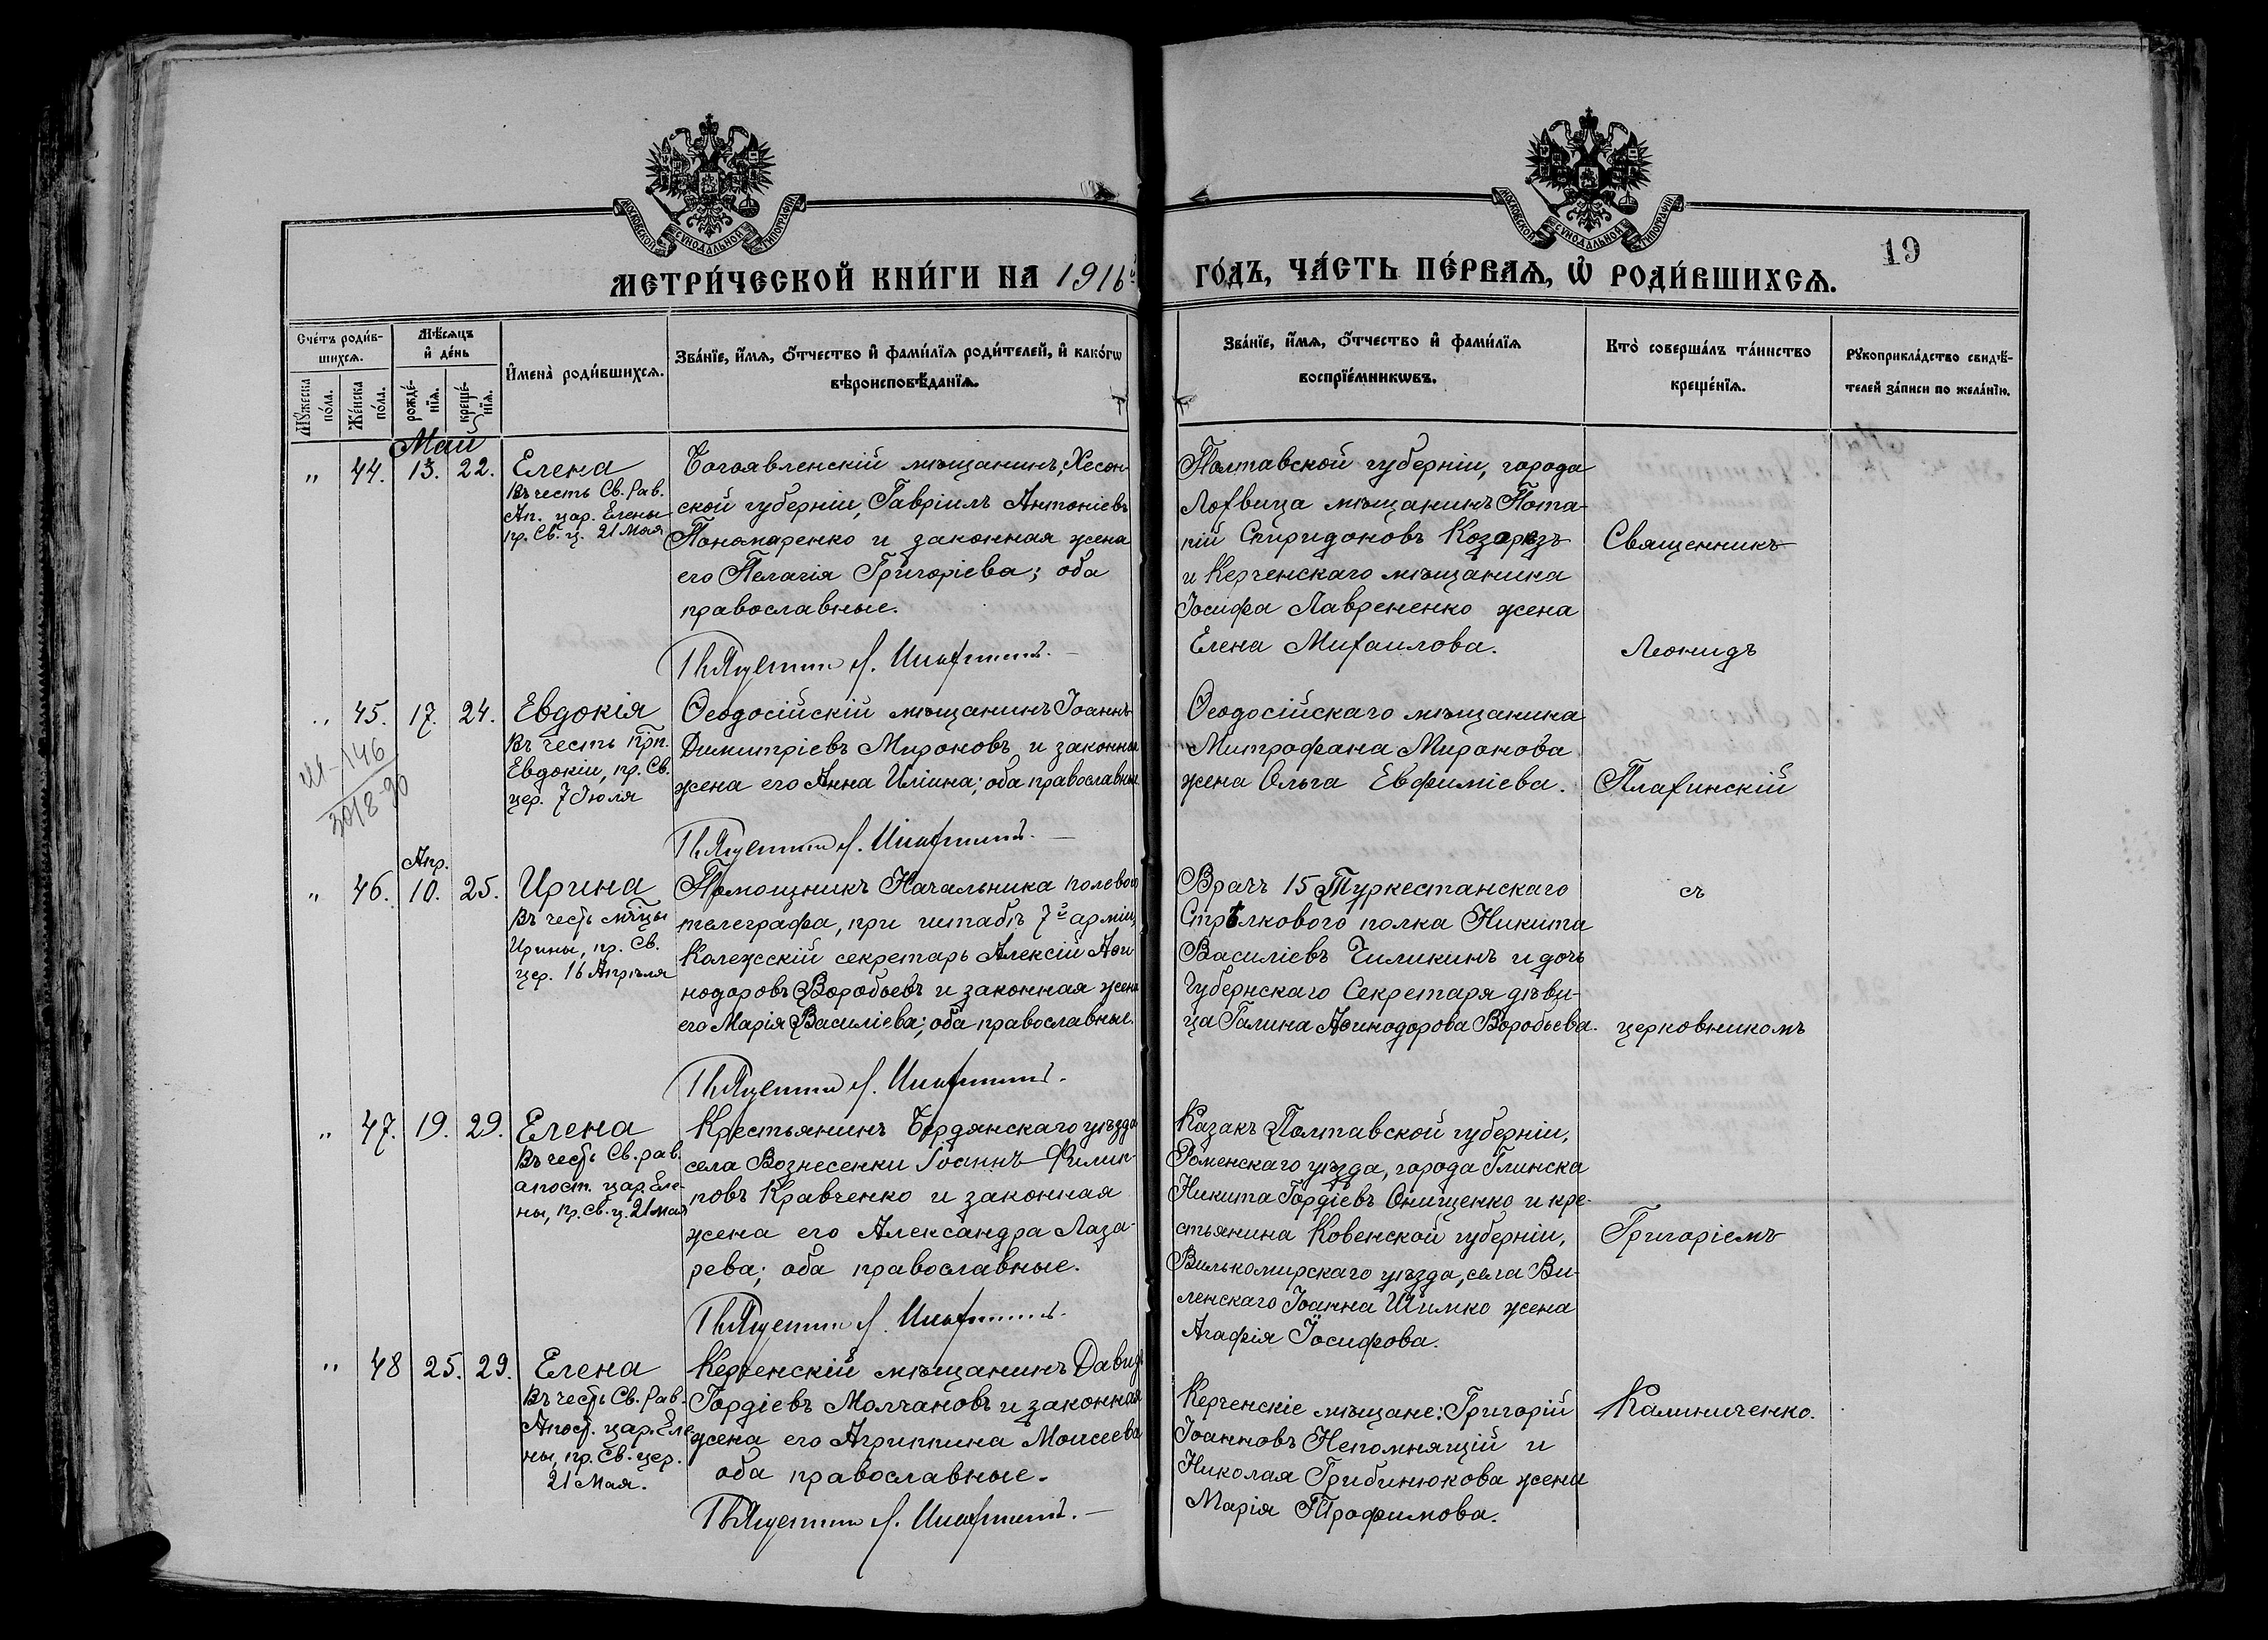 МОСКОВСКОЙ СѴНОДАЛЬНОЙ ТИПОГРАФІИ
МОСКОВСКОЙ СѴНОДАЛЬНОЙ ТИПОГРАФІИ
19
МЕТРИ́ЧЕСКОЙ КНИ́ГИ НА 1916й
ГО́ДЪ, ЧА́СТЬ ПЕ́РВАѦ, Ѿ РОДИ́ВШИХСѦ.
Сче́тъ роди́в-
шихсѧ.
Мꙋ́жеска по́ла.
Же́нска по́ла.
Мѣ́сѧцъ
и҆ де́нь
рожде́-
нїѧ.
креще́-
нїѧ.
И҆мена̀ роди́вшихсѧ.
Зва́нїе, и҆́мѧ, ѻ҆́тчество и҆ фами́лїѧ роди́телей, и҆ како́гѡ
вѣроисповѣ́данїѧ.
Зва́нїе, и҆́мѧ, ѻ҆́тчество и҆ фами́лїѧ
воспрїе́мникѡвъ.
Кто̀ соверша́лъ та́инство
креще́нїѧ.
Рꙋкоприкла́дство свидѣ́-
телей за́писи по жела́нїю.
Май
„ 44. 13. 22. Елена
Въ честь Св. Рав.
Ап. цар. Елены
пр. Св. ц. 21 Мая
Богоявленскій мѣщанинъ, Хесон-
ской губерніи, Гавріилъ Антоніевъ
Пономаренко и законная жена
его Пелагія Григоріева; оба
православные.
Полтавской губерніи, города
Лохвица мѣщанинъ Пота-
пій Спиридоновъ Козорезъ
и Керченскаго мѣщанина
Іосифа Лаврененко жена
Елена Михаилова.
Священникъ
Леонидъ
„ 45. 17. 24. Евдокія
Въ честь прп.
Евдокіи, пр. Св.
цер. 7 Іюля
Ѳеодосійскій мѣщанинъ Іоаннъ
Димитріевъ Мироновъ и законная
жена его Анна Иліина; оба православные
Ѳеодосійскаго мѣщанина
Митрофана Миронова
жена Ольга Евфиміева.
Плахинскій
Апр.
„ 46. 10. 25. Ирина
Въ честь мч҃цы
Ирины, пр. Св.
цер. 16 Апрѣля
Помощникъ Начальника полевого
телеграфа, при штабѣ 7й арміи,
Колежскій секретарь Алексій Аѳи-
нодоровъ Воробьевъ и законная жена
его Марія Василіева; оба православные.
Врачъ 15 Туркестанскаго
Стрѣлкового полка Никита
Василіевъ Чиликинъ и дочь
Губернскаго Секретаря дѣви-
ца Галина Аѳинодорова Воробьева.
съ
церковникомъ
„ 47. 19. 29. Елена
Въ честь Св. рав.
апост. цар. Еле-
ны, пр. св. ц. 21 мая
Крестьянинъ Бердянскаго уѣзда
села Вознесенки Іоаннъ Филип-
повъ Кравченко и законная
жена его Александра Лаза-
рева; оба православные.
Казакъ Полтавской губерніи,
Роменскаго уѣзда, города Глинска
Никита Гордіевъ Онищенко и кре-
стьянина Ковенской губерніи,
Вилькомирскаго уѣзда, села Ви-
ленскаго Іоанна Шимко жена
Агафія Іосифова.
Григоріемъ
„ 48 25. 29. Елена
Въ честь Св. Рав.
Апост. цар. Еле-
ны, пр. Св. цер.
21 Мая.
Керченскій мѣщанинъ Давидъ
Гордіевъ Молчановъ и законная
жена его Агриппина Моисеева
оба православные.
Керченскіе мѣщане: Григорій
Іоанновъ Непомнящій и
Николая Грибинюкова жена
Марія Трофимова.
Калиниченко.